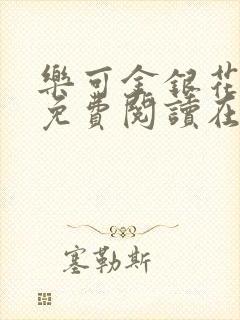 樂可金銀花
免費閱讀在
塞勒斯